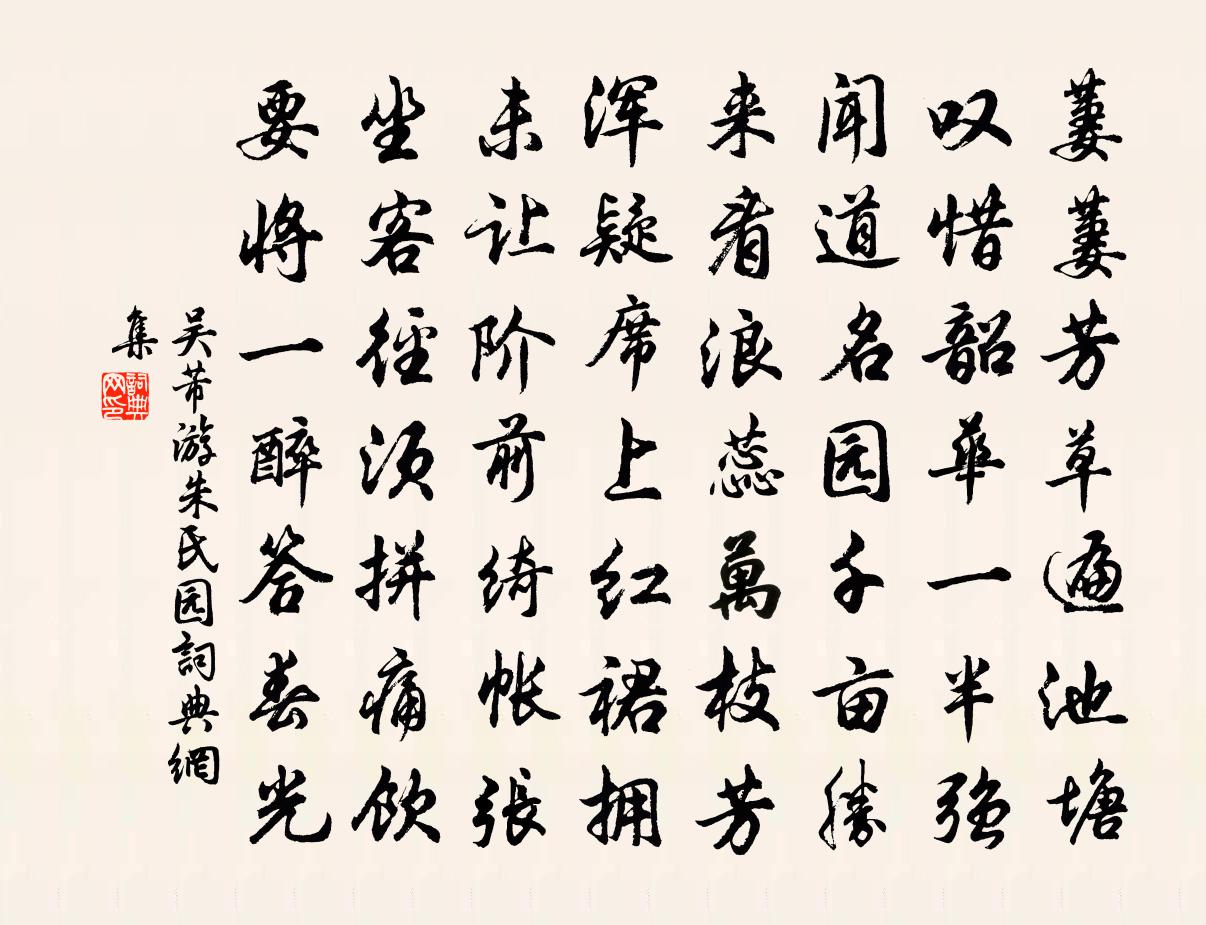 萋萋芳草遍池塘
叹惜韶华一半强
闻道名园千亩胜
来看浪蕊萬枝芳
浑疑席上红裙拥
未让阶前绮帐張
坐客径须拼痛饮
要将一醉答春光
吴芾游朱氏园詞典網
集
詞典网印